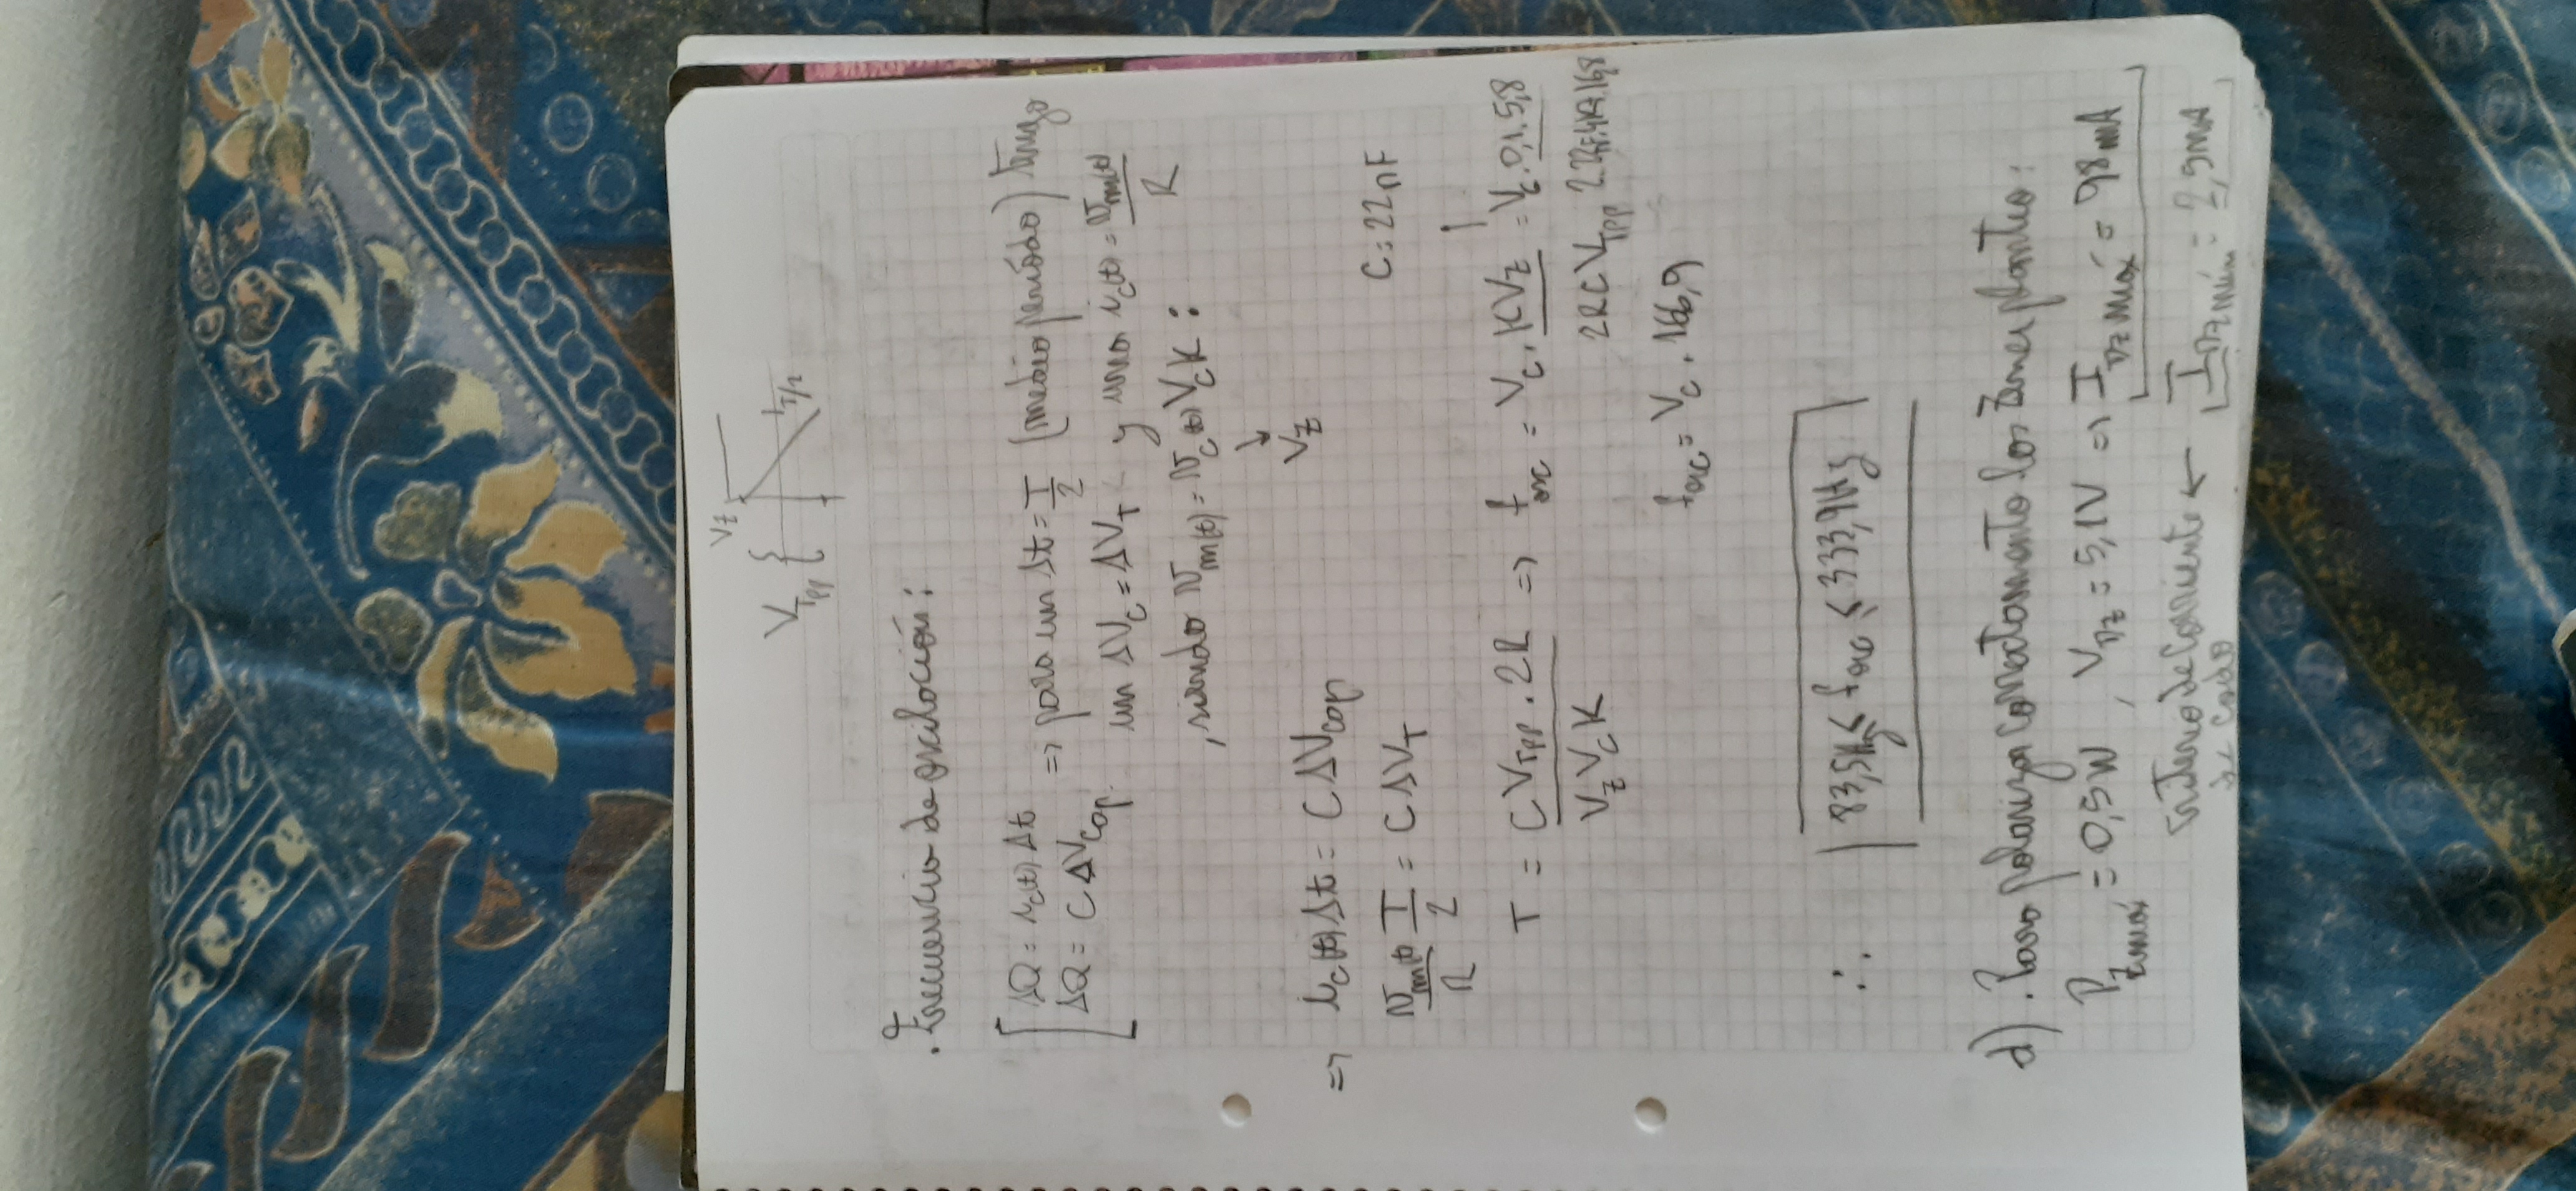 Vz
V_Tpp { T/2
. Frecuencia de oscilación:
ΔQ = i_c(t) Δt
ΔQ = C ΔV_cap. => para un Δt = T/2 (medio período) tengo
un ΔV_c = ΔV_T y una i_c(t) = v_m(t)/R
, siendo v_m(t) = v_c(t) V_c K :
↓
Vz
=> i_c(t) Δt = C ΔV_cap
v_m(t)/R T/2 = C ΔV_T
C = 22nF
T = C V_Tpp . 2R / V_z V_c K => f_osc = V_c . K Vz / 2RC V_Tpp = V_c . 0,1 . 5,8 / 2.22nF.4K7.16,8
f_osc = V_c . 166,9
∴ 83,5Hz ≤ f_osc ≤ 333,9Hz
d) . Para polarizar correctamente los Zener planteo:
P_zmáx = 0,5W , V_Dz = 5,1V => I_Dz máx = 98mA
criterio de corriente ← I_Dz mín = 2,9mA
de codo